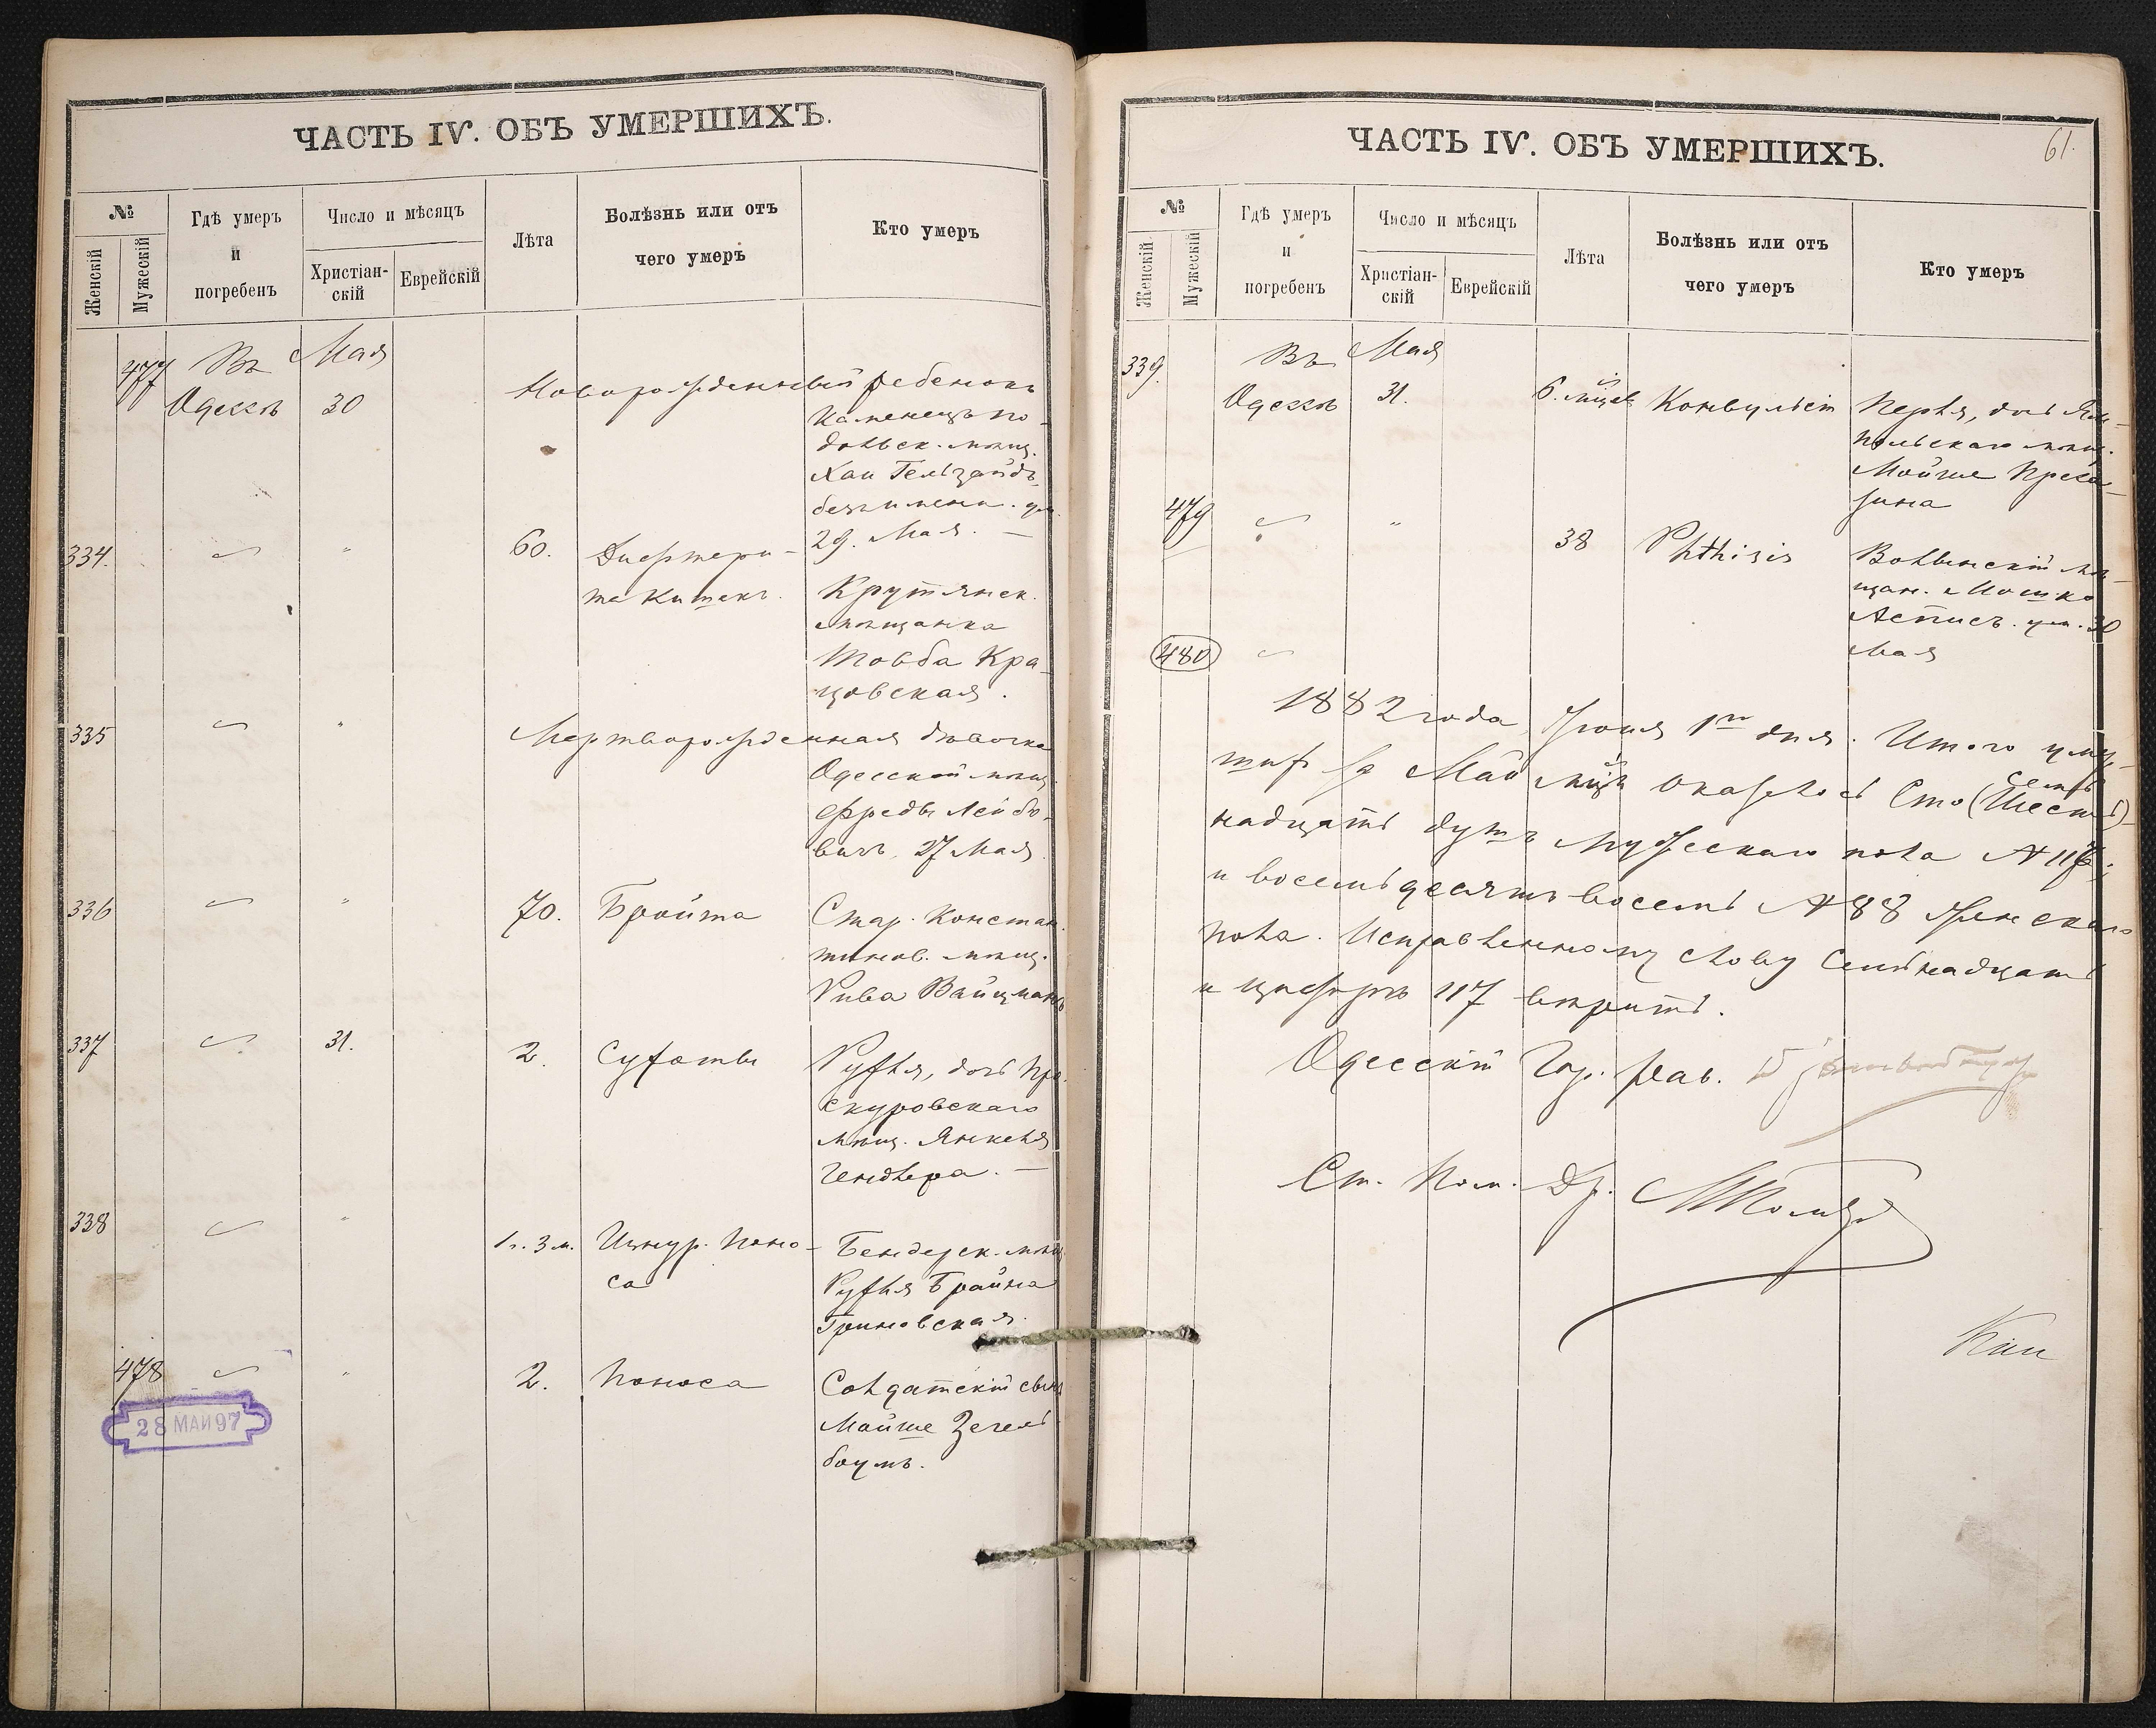 ЧАСТЬ IV. ОБЪ УМЕРШИХЪ.
№
Женскій
Мужескій
Гдѣ умеръ
и
погребенъ
Число и мѣсяцъ
Христіан-
скій
Еврейскій
Лѣта
Болѣзнь или отъ
чего умеръ
Кто умеръ
477 Въ Мая
Одессѣ 30 Новорожденный ребенокъ
Каменецъ по-
дольск. мѣщ.
Хаи Гельзайдъ,
безъ имени. ум.
29. Мая. —
334. " 60. Дифтери-
та кишекъ.
Крутянск.
мѣщанка
Товба Кра-
цовская.
335 " Мертворожденная дѣвочка
Одесской мѣщ.
Фреды Лейбо-
вичъ, 27 Мая
336 " 70. Бройта Стар. Констан-
тинов. мѣщ.
Рива Вайцманъ
337 31. 2. Сухоты Рухля, дочь Про-
скуровскаго
мѣщ. Янкеля
Гендлера. —
338 " 1 г. 3 м. Изнур. Поно-
са
Бендерск. мѣщ.
Рухля Брайна
Гриновская.
478 " 2. Поноса Солдатскій сынъ
Мойше Зегель-
боумъ.
28 МАЙ 97
ЧАСТЬ IV. ОБЪ УМЕРШИХЪ.
61.
№
Женскій
Мужескій
Гдѣ умеръ
и
погребенъ
Число и мѣсяцъ
Христіан-
скій
Еврейскій
Лѣта
Болѣзнь или отъ
чего умеръ
Кто умеръ
339. Въ Мая
Одессѣ 31. 6. мѣсяц. Конвульсіи Перля, дочь Ям-
польскаго мѣщ.
Мойше Преса-
зина
479 " 38 Phthisis Волынскій мѣ-
щан. Мошко
Асписъ. ум. 30
Мая
480
1882 года Іюня 1го дня. Итого умер-
шихъ за Май мѣсяцъ оказалось Сто (Шесть)
Семь
надцать душъ мужескаго пола № 117
и восемьдесятъ восемь № 88 женскаго
пола. Исправленному слову Семьнадцать
и цифръ 117 вѣрить.
Одесскій Гор. Рав.
Ст. Пом. Др.